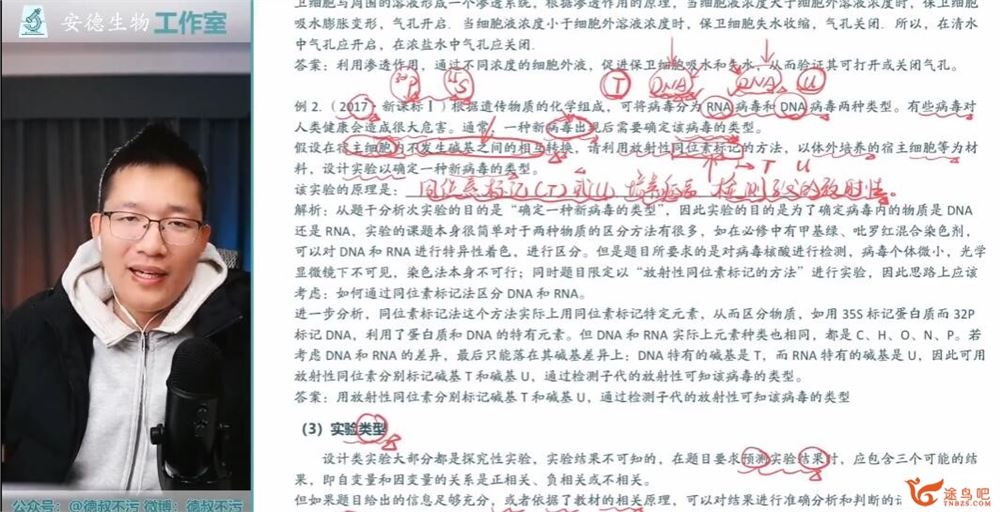 安德生物工作室
卫细胞与周围的溶液形成一个渗透系统，根据渗透作用的原理，当细胞液浓度大于细胞外溶液浓度时，保卫细胞
吸水膨胀变形，气孔开启．当细胞液浓度小于细胞外溶液浓度时，保卫细胞失水收缩，气孔关闭．所以，在清水
中气孔应开启，在浓盐水中气孔应关闭．
答案：利用渗透作用，通过不同浓度的细胞外液，促进保卫细胞吸水和失水，从而验证其可打开或关闭气孔。
32P 35S T DNA RNA U
例 2.（2017·新课标Ⅰ）根据遗传物质的化学组成，可将病毒分为 RNA 病毒和 DNA 病毒两种类型。有些病毒对
人类健康会造成很大危害。通常，一种新病毒出现后需要确定该病毒的类型。
假设在宿主细胞内不发生碱基之间的相互转换，请利用放射性同位素标记的方法，以体外培养的宿主细胞等为材
料，设计实验以确定一种新病毒的类型。
T U
该实验的原理是：同位素标记(T)或U 培养后 检测子代的放射性。
解析：从题干分析次实验的目的是“确定一种新病毒的类型”，因此实验的目的是为了确定病毒内的物质是 DNA
还是 RNA，实验的课题本身很简单对于两种物质的区分方法有很多，如在必修中有甲基绿、吡罗红混合染色剂，
可以对 DNA 和 RNA 进行特异性着色，进行区分。但是题目所要求的是对病毒核酸进行检测，病毒个体微小，光学
显微镜下不可见，染色法本身不可行；同时题目限定以“放射性同位素标记的方法”进行实验，因此思路上应该
考虑：如何通过同位素标记法区分 DNA 和 RNA。
进一步分析，同位素标记法这个方法实际上用同位素标记特定元素，从而区分物质，如用 35S 标记蛋白质而 32P
标记 DNA，利用了蛋白质和 DNA 的特有元素。但 DNA 和 RNA 实际上元素种类也相同，都是 C、H、O、N、P。若
考虑 DNA 和 RNA 的差异，最后只能落在其碱基差异上：DNA 特有的碱基是 T，而 RNA 特有的碱基是 U，因此可用
放射性同位素分别标记碱基 T 和碱基 U，通过检测子代的放射性可知该病毒的类型。
答案：用放射性同位素分别标记碱基 T 和碱基 U，通过检测子代的放射性可知该病毒的类型
（3）实验类型
设计类实验大部分都是探究性实验，实验结果不可知的，在题目要求预测实验结果时，应包含三个可能的结
果，即自变量和因变量的关系是正相关、负相关或不相关。
但如果题目给出的信息足够充分，或者依据了教材的相关原理，可以对结果进行准确分析和判断的
公众号：@德叔不污 微博：德叔不污
途鸟吧
TNBZS.COM